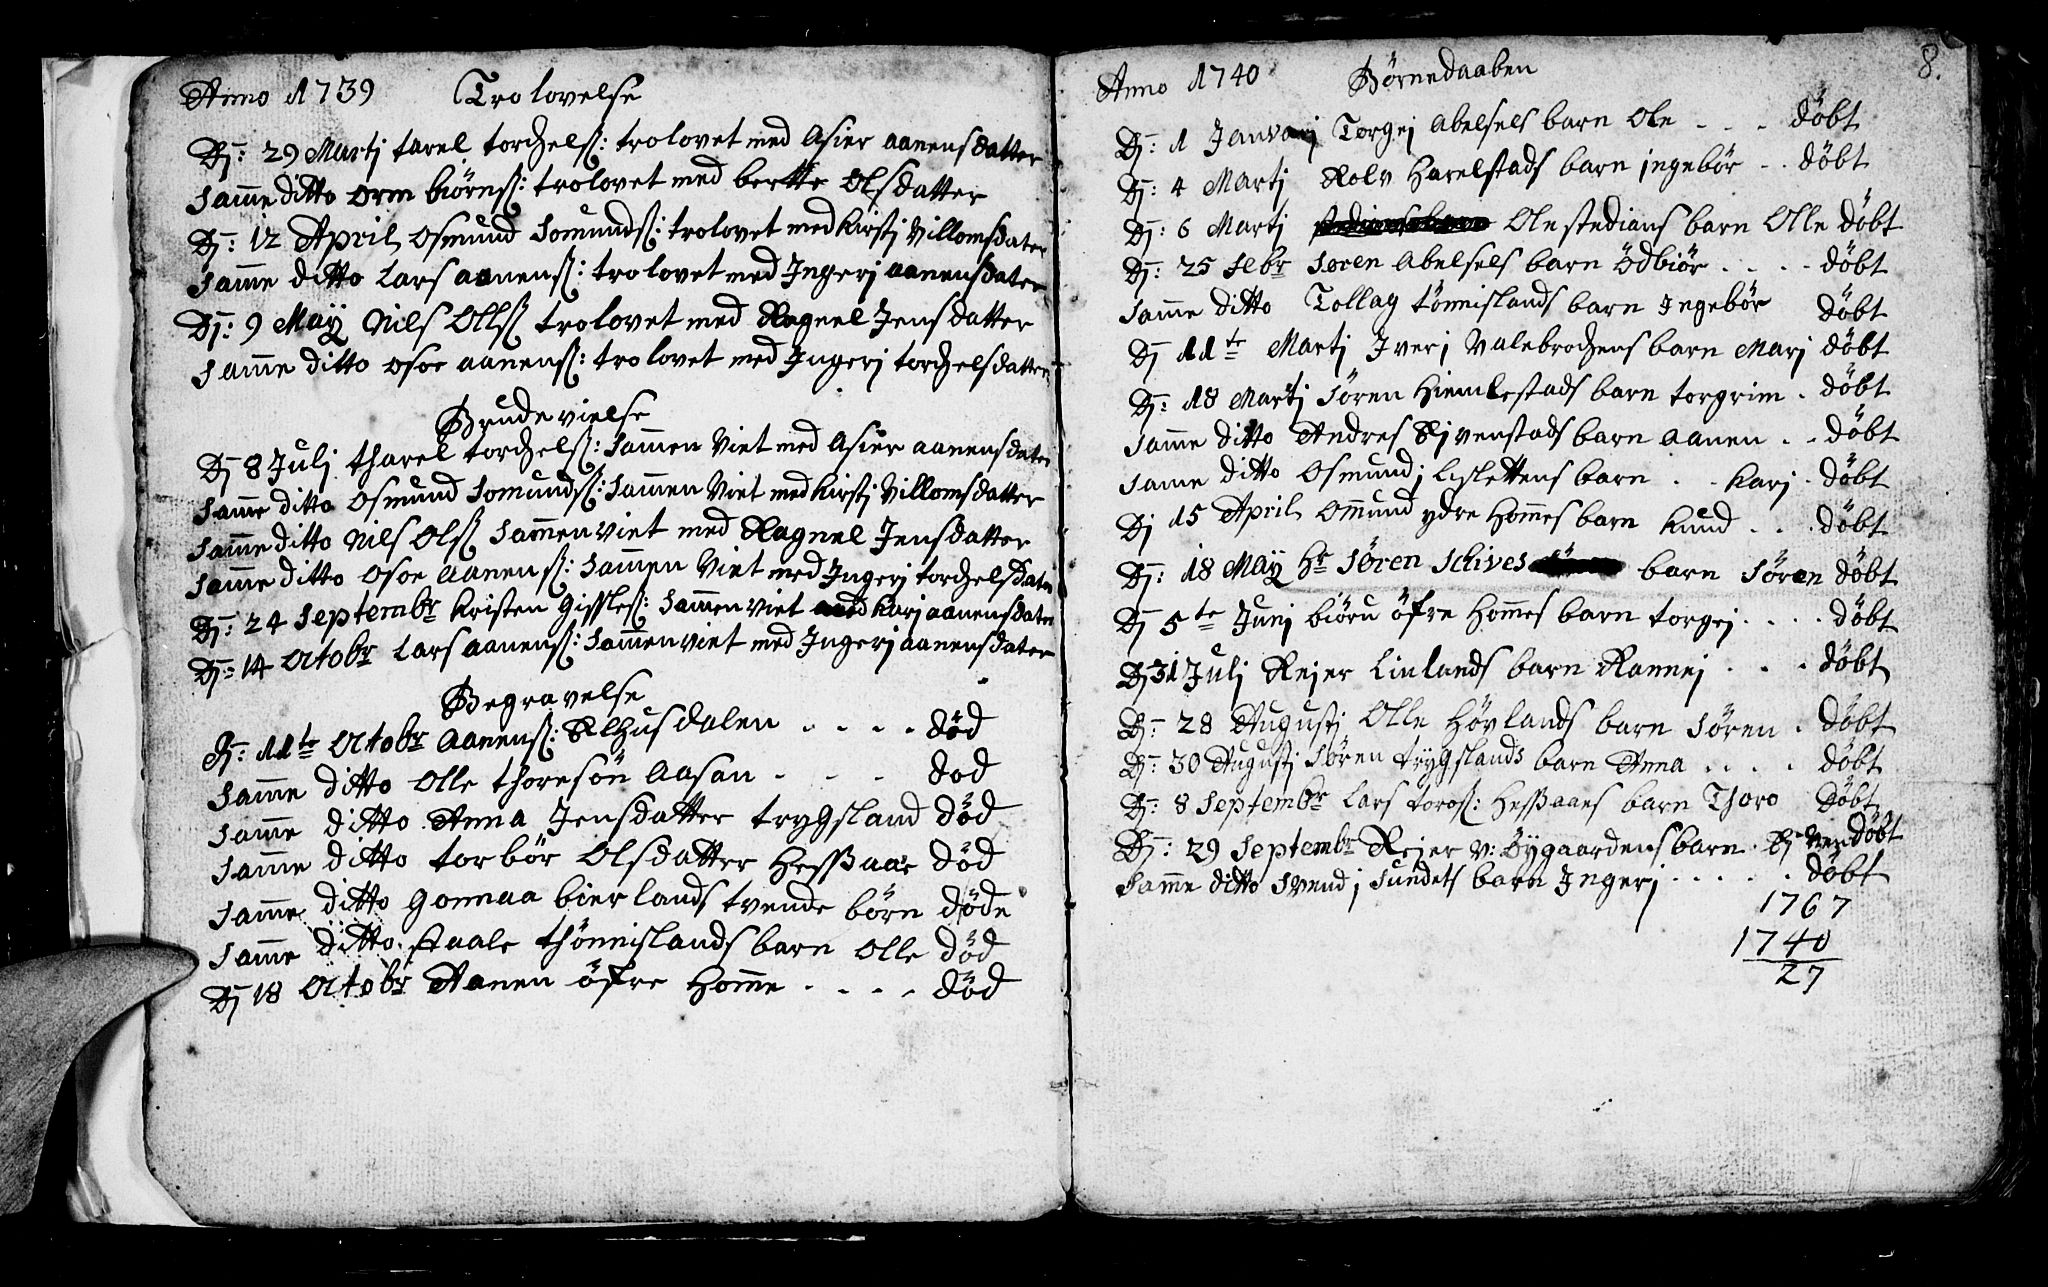 Anno 1739 Trolovelse
Dj: 29 Martj tarel torchelsß: trolovet med Asier aanensdatter
Samme ditto orm biørnsß: trolovet med bertte Olsdatter
Dj: 12 April osmund Somundsß: trolovet med Kirstj Villomsdater
Samme ditto Lars aanensß: trolovet med Jngerj aanensdater
Dj: 9 Maÿ Nils Ollsß trolovet med Ragnel Jensdatter
Samme ditto osoe aanensß: trolovet med Jngerj torchelsdatter
Brudevielse
Dj 8 Julj tharel torchelsß: Sammen Viet med Asier aanensdater
Samme ditto osmund Somundsß: Sammen Viet med Kirstj Villomsdatter
Samme ditto Nils Olsß Sammen viet med Ragnel Jensdatter
Samme ditto osoe aanensß: Sammen Viet med Jngerj torchelsdater
Dj: 24 Septembr Kristen Gisslesß: Sammen viet med Karj aanensdater
Dj: 14 Octobr Lars aanensß: Sammen viet med Jngerj aanensdater
Begravelse
Dj: 11te Octobr Aanensß: Ælhusdalen . . . . død
Samme ditto Olle thoresön Aasan - - - dod
Samme ditto Anna Jensdatter trygsland död
Samme ditto torbör Olsdatter Hesßaae död
Samme ditto Gonnaa bierlands tvende börn döde
Samme ditto staale thönnislands barn olle död
Dj 18 Octobr Aanen öfre Homme . . . . död
8.
Anno 1740 Börnedaaben
Dj: 1 Janvarj Torgej Abelsels barn Ole . . . döbt
Dj: 4 Martj Rolv Harelstads barn jngebör . . döbt
Dj: 6 Martj Ole stedians barn Olle döbt
Dj: 25 Febr Søren Abelsels barn Ödbiör . . . . döbt
Samme ditto Tollag tönnislands barn Jngebör döbt
Dj 11te Martj Jverj Valebrochens barn Marj döbt
Dj: 18 Martj Sören Hiemlestads barn torgrim . döbt
Samme ditto Andres Sivenstads barn aanen . . döbt
Same ditto Osmund j Lislettens barn . . Karj . döbt
Dj 15 April Ommund ydre Hommes barn Knud . . . döbt
Dj: 18 Maÿ Hr Sören Schives barn Sören döbt
Dj 5te Junj biöru öfre Hommes barn torgej . . . . döbt
Dj 31 Julj Rejer Linlands barn Rannej . . . döbt
Dj: 28 Augustj Olle Hövlands barn Sören . döbt
Dj: 30 Augustj Sören trygslands barn Anna . . . . döbt
Dj: 8 Septembr Lars torosß: Hesßaaes barn Thoro döbt
Dj: 29 Septembr Rejer v: Öygaardens barn . döbt
Samme ditto Svend j Sundets barn Jngerj . . . . . döbt
1767
1740
27